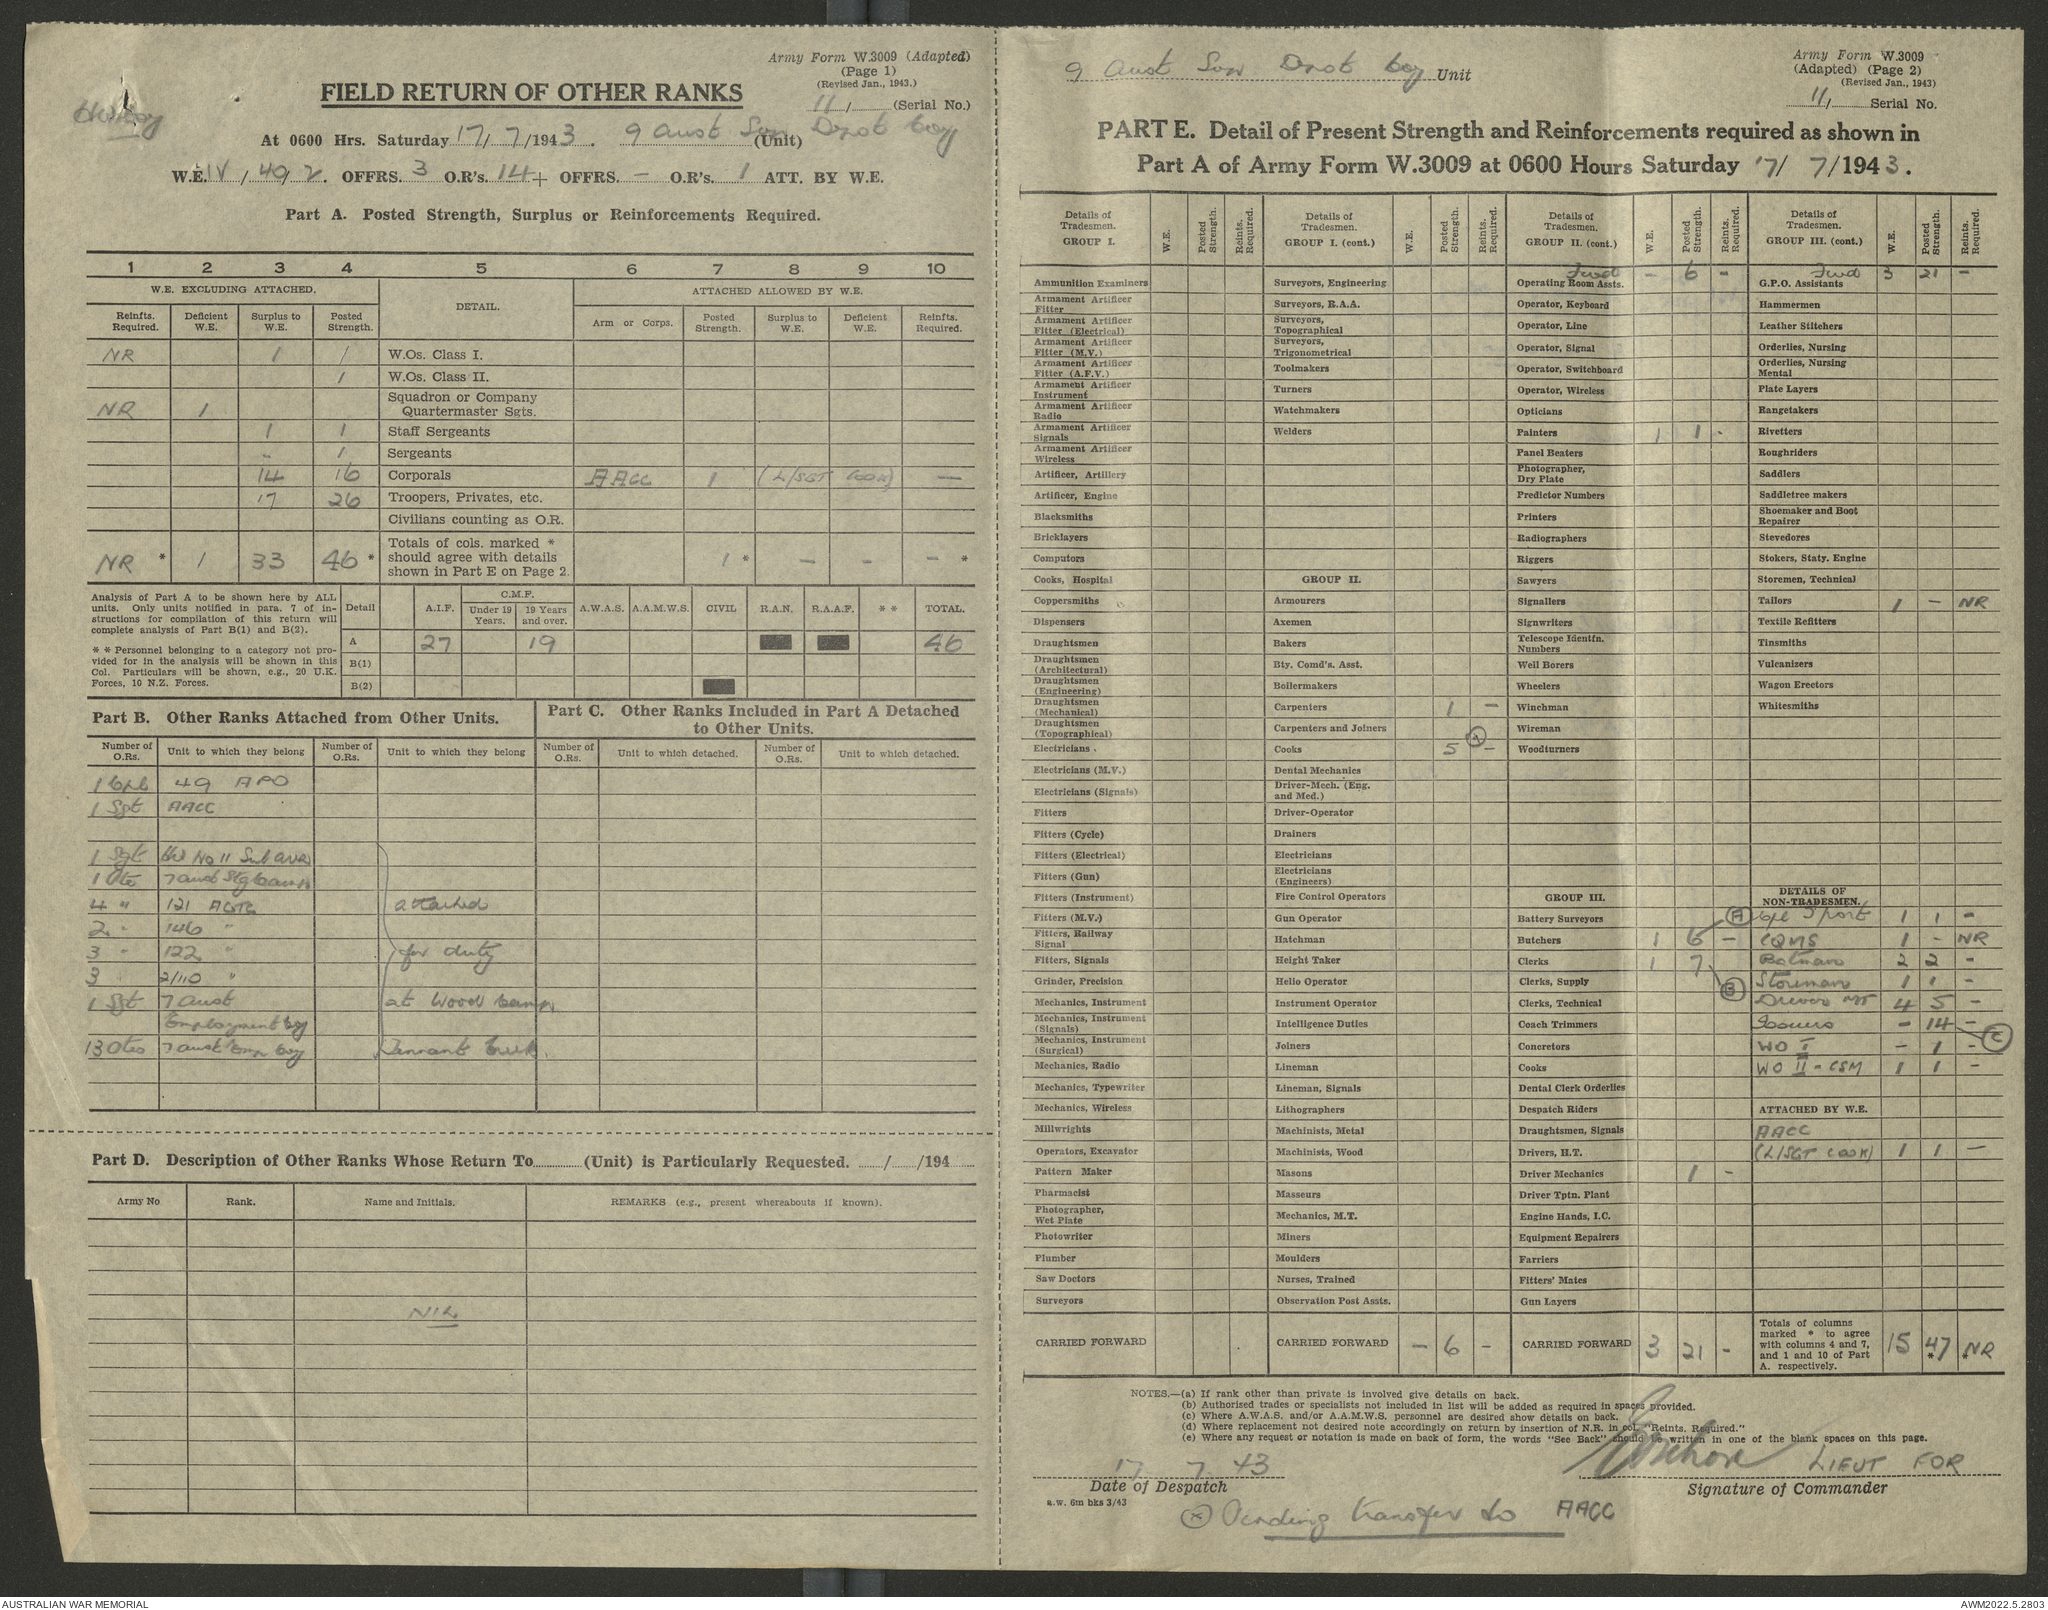 Army Form W.3009 (Adapted)
(Page 1)
(Revised Jan., 1943.)
FIELD RETURN OF OTHER RANKS
11/ (Serial No.)
At 0600 Hrs. Saturday 17/7/1943. 9 Aust Sup Depot Coy (Unit)
W.E. IV/49/2. OFFRS. 3 O.R's. 14 + OFFRS. - O.R's. 1 ATT. BY W.E.
Part A. Posted Strength, Surplus or Reinforcements Required.
1 2 3 4 5 6 7 8 9 10
W.E. EXCLUDING ATTACHED. DETAIL. ATTACHED ALLOWED BY W.E.
Reinfts. Required. Deficient W.E. Surplus to W.E. Posted Strength. Arm or Corps. Posted Strength. Surplus to W.E. Deficient W.E. Reinfts. Required.
NR 1 1 W.Os. Class I.
1 W.Os. Class II.
NR 1 Squadron or Company Quartermaster Sgts.
1 1 Staff Sergeants
- 1 Sergeants
14 16 Corporals AACC 1 (L/SGT COOK) -
17 26 Troopers, Privates, etc.
Civilians counting as O.R.
NR * 1 33 46 * Totals of cols. marked * should agree with details shown in Part E on Page 2. 1 * - - - *
Analysis of Part A to be shown here by ALL
units. Only units notified in para. 7 of in-
structions for compilation of this return will
complete analysis of Part B(1) and B(2).
* * Personnel belonging to a category not pro-
vided for in the analysis will be shown in this
Col. Particulars will be shown, e.g., 20 U.K.
Forces, 10 N.Z. Forces.
Detail A.I.F. C.M.F. Under 19 Years. 19 Years and over. A.W.A.S. A.A.M.W.S. CIVIL R.A.N. R.A.A.F. * * TOTAL.
A 27 19 46
B(1)
B(2)
Part B. Other Ranks Attached from Other Units.
Number of O.Rs. Unit to which they belong Number of O.Rs. Unit to which they belong
1 Cpl 49 APO
1 Sgt AACC
1 Sgt No 11 Sub
1 Pte 7 Aust
4 " 121 AGTC attached
2 " 146 "
3 " 122 " for duty
3 " 2/110 "
1 Sgt 7 Aust at Wood Camp
Employment Coy
13 Ptes 7 Aust Emp Coy Tennant Creek.
Part C. Other Ranks Included in Part A Detached
to Other Units.
Number of O.Rs. Unit to which detached. Number of O.Rs. Unit to which detached.
Part D. Description of Other Ranks Whose Return To (Unit) is Particularly Requested. / /194
Army No Rank. Name and Initials. REMARKS (e.g., present whereabouts if known).
NIL
9 Aust Sup Depot Coy Unit
Army Form W.3009
(Adapted) (Page 2)
(Revised Jan., 1943)
11/ Serial No.
PART E. Detail of Present Strength and Reinforcements required as shown in
Part A of Army Form W.3009 at 0600 Hours Saturday 17/ 7/1943.
Details of Tradesmen. GROUP I. W.E. Posted Strength. Reints. Required.
Ammunition Examiners
Armament Artificer Fitter
Armament Artificer Fitter (Electrical)
Armament Artificer Fitter (M.V.)
Armament Artificer Fitter (A.F.V.)
Armament Artificer Instrument
Armament Artificer Radio
Armament Artificer Signals
Armament Artificer Wireless
Artificer, Artillery
Artificer, Engine
Blacksmiths
Bricklayers
Computors
Cooks, Hospital
Coppersmiths
Dispensers
Draughtsmen
Draughtsmen (Architectural)
Draughtsmen (Engineering)
Draughtsmen (Mechanical)
Draughtsmen (Topographical)
Electricians
Electricians (M.V.)
Electricians (Signals)
Fitters
Fitters (Cycle)
Fitters (Electrical)
Fitters (Gun)
Fitters (Instrument)
Fitters (M.V.)
Fitters, Railway Signal
Fitters, Signals
Grinder, Precision
Mechanics, Instrument
Mechanics, Instrument (Signals)
Mechanics, Instrument (Surgical)
Mechanics, Radio
Mechanics, Typewriter
Mechanics, Wireless
Millwrights
Operators, Excavator
Pattern Maker
Pharmacist
Photographer, Wet Plate
Photowriter
Plumber
Saw Doctors
Surveyors
CARRIED FORWARD
Details of Tradesmen. GROUP I. (cont.) W.E. Posted Strength. Reints. Required.
Surveyors, Engineering
Surveyors, R.A.A.
Surveyors, Topographical
Surveyors, Trigonometrical
Toolmakers
Turners
Watchmakers
Welders
GROUP II.
Armourers
Axemen
Bakers
Bty. Comd's. Asst.
Boilermakers
Carpenters 1 -
Carpenters and Joiners
Cooks 5 -
Dental Mechanics
Driver-Mech. (Eng. and Med.)
Driver-Operator
Drainers
Electricians
Electricians (Engineers)
Fire Control Operators
Gun Operator
Hatchman
Height Taker
Helio Operator
Instrument Operator
Intelligence Duties
Joiners
Lineman
Lineman, Signals
Lithographers
Machinists, Metal
Machinists, Wood
Masons
Masseurs
Mechanics, M.T.
Miners
Moulders
Nurses, Trained
Observation Post Assts.
CARRIED FORWARD - 6 -
Details of Tradesmen. GROUP II. (cont.) W.E. Posted Strength. Reints. Required.
Fwd - 6 -
Operating Room Assts.
Operator, Keyboard
Operator, Line
Operator, Signal
Operator, Switchboard
Operator, Wireless
Opticians
Painters 1 1 -
Panel Beaters
Photographer, Dry Plate
Predictor Numbers
Printers
Radiographers
Riggers
Sawyers
Signallers
Signwriters
Telescope Identfn. Numbers
Well Borers
Wheelers
Winchman
Wireman
Woodturners
GROUP III.
Battery Surveyors
Butchers 1 6 - A
Clerks 1 7 B
Clerks, Supply
Clerks, Technical
Coach Trimmers
Concretors
Cooks
Dental Clerk Orderlies
Despatch Riders
Draughtsmen, Signals
Drivers, H.T.
Driver Mechanics 1 -
Driver Tptn. Plant
Engine Hands, I.C.
Equipment Repairers
Farriers
Fitters' Mates
Gun Layers
CARRIED FORWARD 3 21 -
Details of Tradesmen. GROUP III. (cont.) W.E. Posted Strength. Reints. Required.
Fwd 3 21 -
G.P.O. Assistants
Hammermen
Leather Stitchers
Orderlies, Nursing
Orderlies, Nursing Mental
Plate Layers
Rangetakers
Rivetters
Roughriders
Saddlers
Saddletree makers
Shoemaker and Boot Repairer
Stevedores
Stokers, Staty. Engine
Storemen, Technical
Tailors 1 - NR
Textile Refitters
Tinsmiths
Vulcanizers
Wagon Erectors
Whitesmiths
DETAILS OF NON-TRADESMEN.
Cpl 1 1 -
CQMS 1 - NR
Batman 2 2 -
Storeman 1 1 -
Driver MT 4 5 -
Issuers - 14 - C
WO I - 1 -
WO II - CSM 1 1 -
ATTACHED BY W.E.
AACC
(L/SGT COOK) 1 1 -
Totals of columns marked * to agree with columns 4 and 7, and 1 and 10 of Part A. respectively. 15 47 * * NR
NOTES.—(a) If rank other than private is involved give details on back.
(b) Authorised trades or specialists not included in list will be added as required in spaces provided.
(c) Where A.W.A.S. and/or A.A.M.W.S. personnel are desired show details on back.
(d) Where replacement not desired note accordingly on return by insertion of N.R. in col. "Reints. Required."
(e) Where any request or notation is made on back of form, the words "See Back" should be written in one of the blank spaces on this page.
17. 7. 43
LIEUT FOR
Date of Despatch
Signature of Commander
a.w. 6m bks 3/43
Pending transfer to AACC
AUSTRALIAN WAR MEMORIAL
AWM2022.5.2803